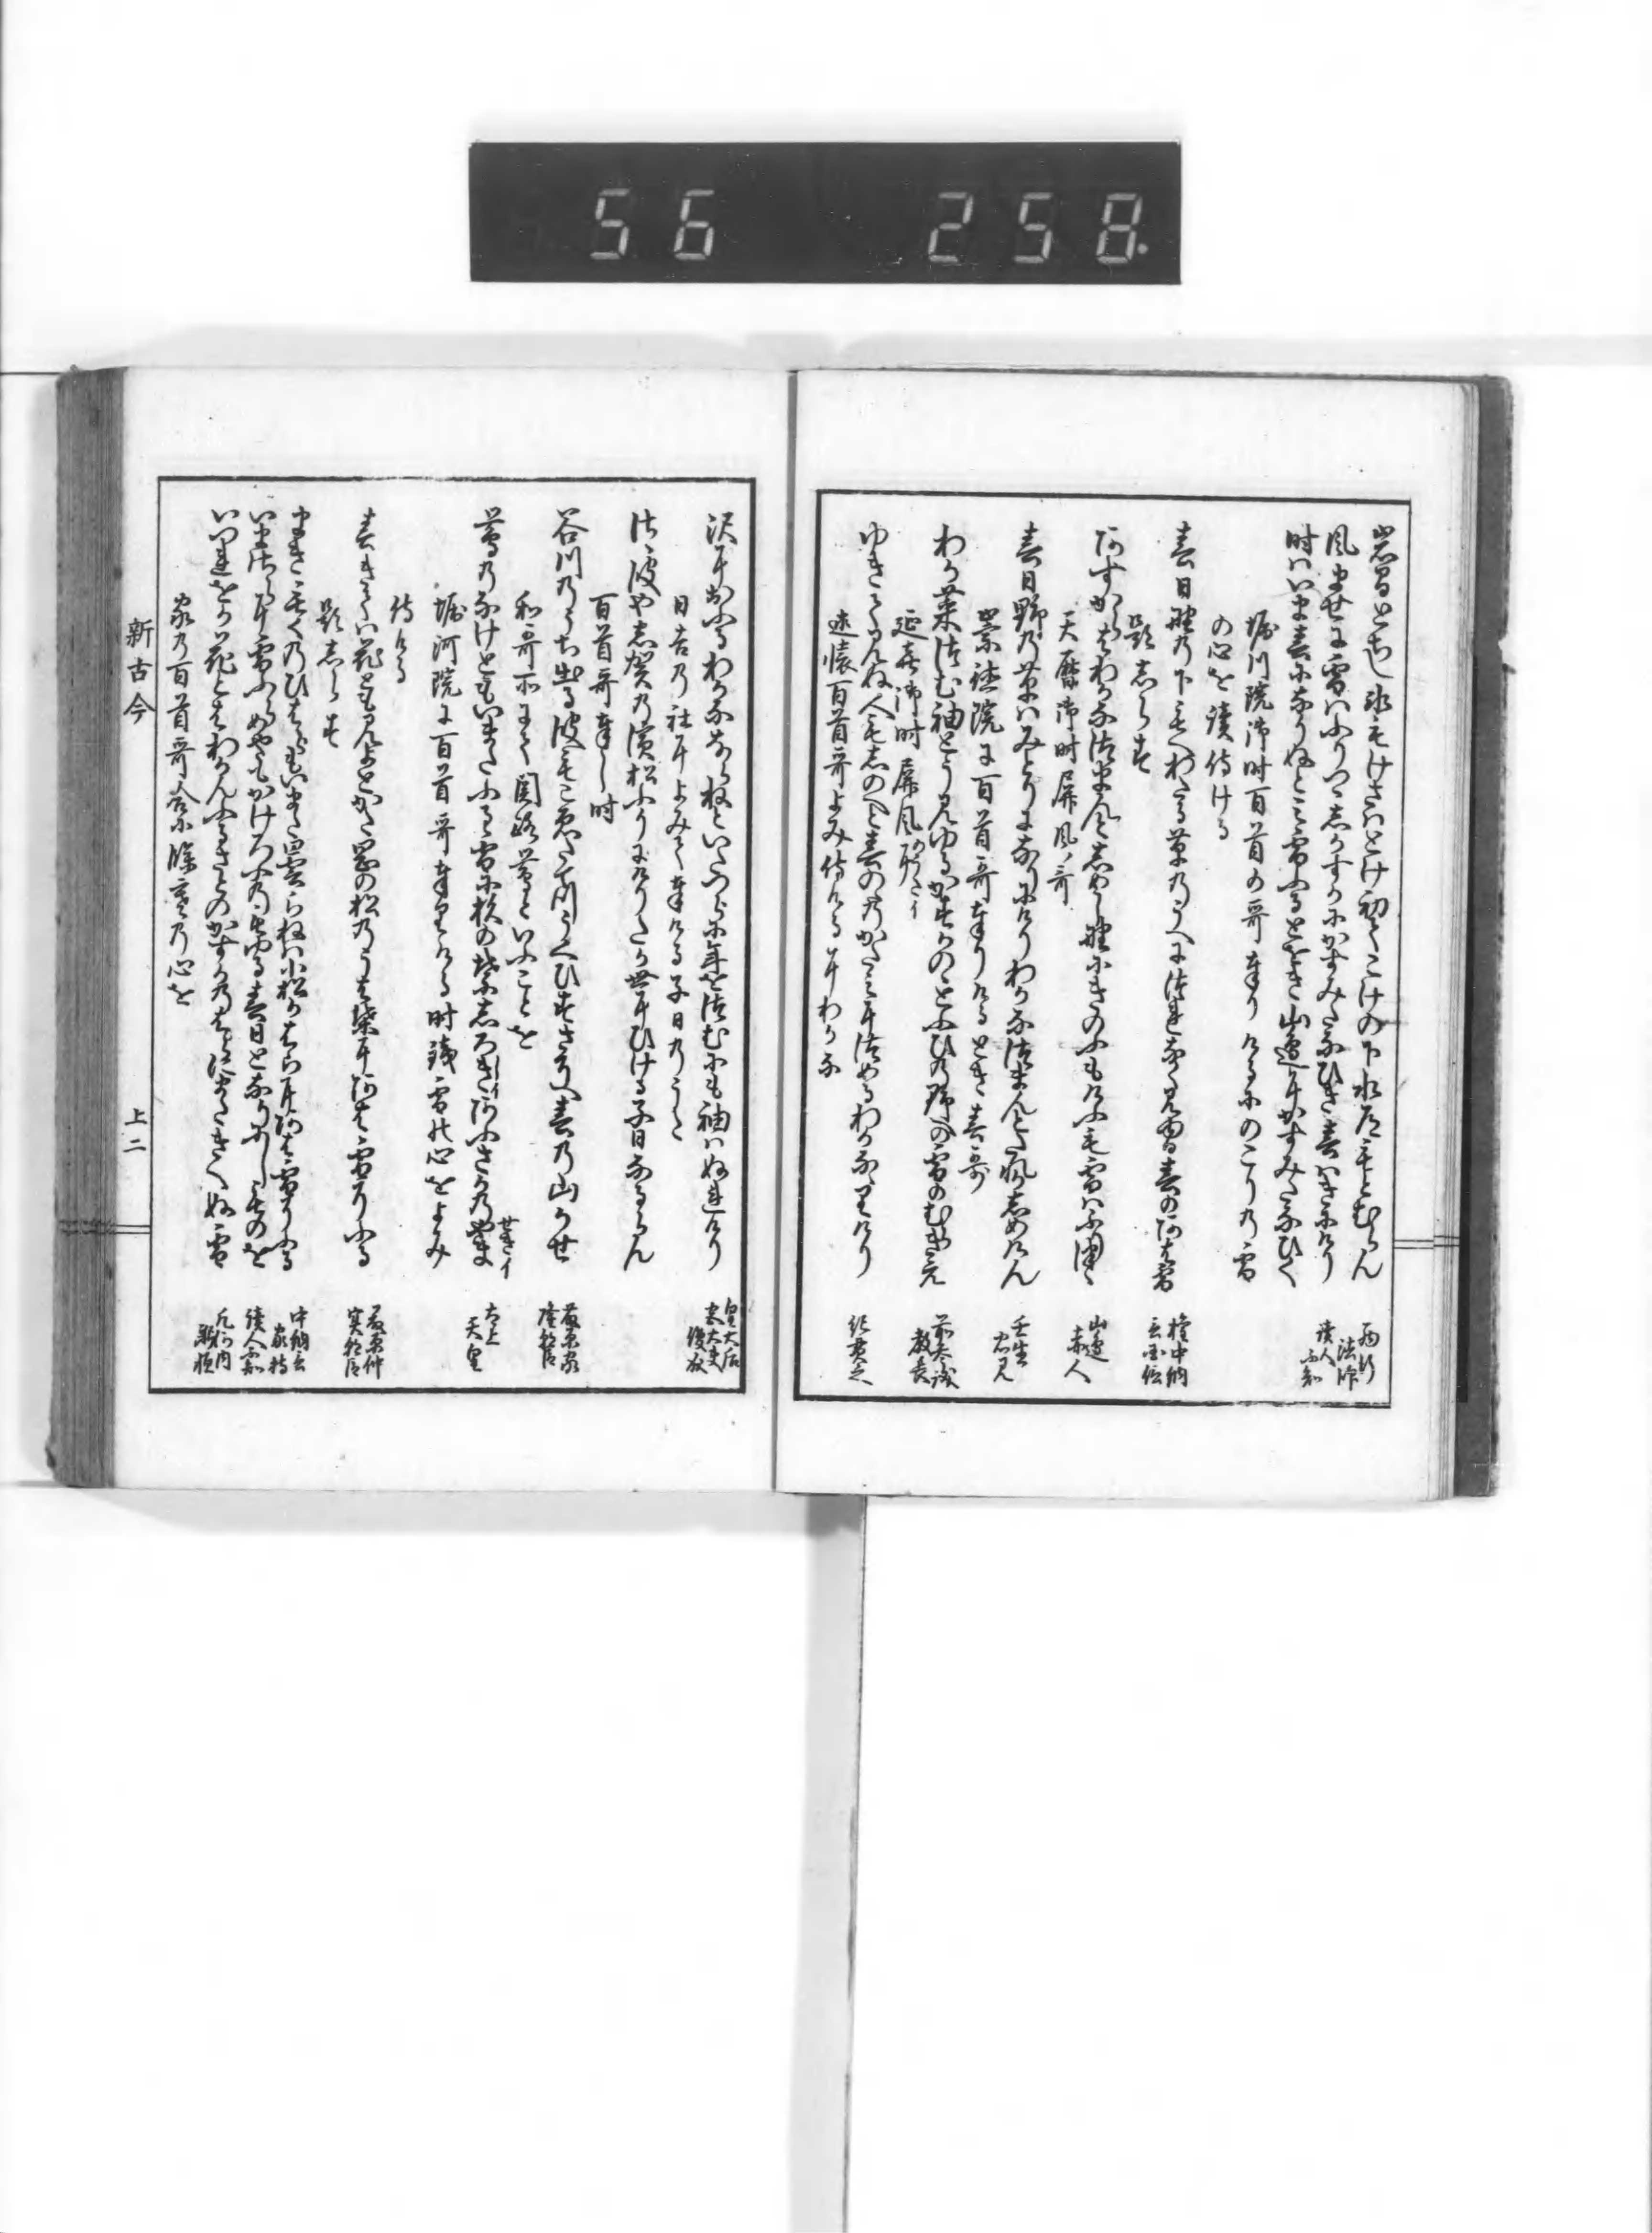 56 258.
岩間とちし氷もけさはとけ初てこけの下水道もとむらん 西行法師
風ませに雪はふりつゝしかすかにかすみたなひき春はきにけり 讀人不知
時はいま春になりぬとみ雪ふるとをき山邊にかすみたなひく
堀川院御時百首の哥奉りけるにのこりの雪
の心を讀侍ける
春日野の下もえわたる草のうへにつれなく見ゆる春のあは雪 權中納言国信
題しらす
あすからはわかなつまんとしめし野にきのふもけふも雪はふりつゝ 山邊赤人
天暦御時屏風ノ哥
春日野の草はみとりになりにけりわかなつまんとたれかしめけん 壬生忠見
崇徳院に百首哥奉りけるとき春哥
わか菜つむ袖とそ見ゆるかすかのゝとふひの野への雪のむらきえ 前参議教長
延喜御時屏風
ゆきて見ぬ人もしのへと春の野のかたみにつめるわかな里けり 紀貫之
述懐百首哥よみ侍けるにわかな
沢におふるわかなならねといたつらに年をつむにも袖はぬれけり 皇太后宮大夫俊成
日吉の社によみて奉ける子日のうた
さゝ波や志賀の濱松ふりにけりたか世にひける子日なるらん
百首哥奉し時
谷川のうち出る波もこゑたてつうくひすさそへ春の山かせ 藤原家隆朝臣
和哥所にて関路鶯といふことを
鶯のなけともいまたふる雪に杉の葉しろきあふさかの山 太上天皇
せきイ
堀河院に百首哥奉りける時残雪の心をよみ
侍ける
春きては花とも見よとかた岡の松のうは葉にあは雪そふる 藤原仲実朝臣
題しらす
まきもくのひはらもいまた曇らねは小松か原にあは雪そふる 中納言家持
いまさらに雪ふらめやもかけろふのもゆる春日となりにしものを 讀人不知
いつれをか花とはわかんふるさとのかすかの原にまたきえぬ雪 凡河内躬恒
家の百首哥合に餘寒の心を
新古今
上二